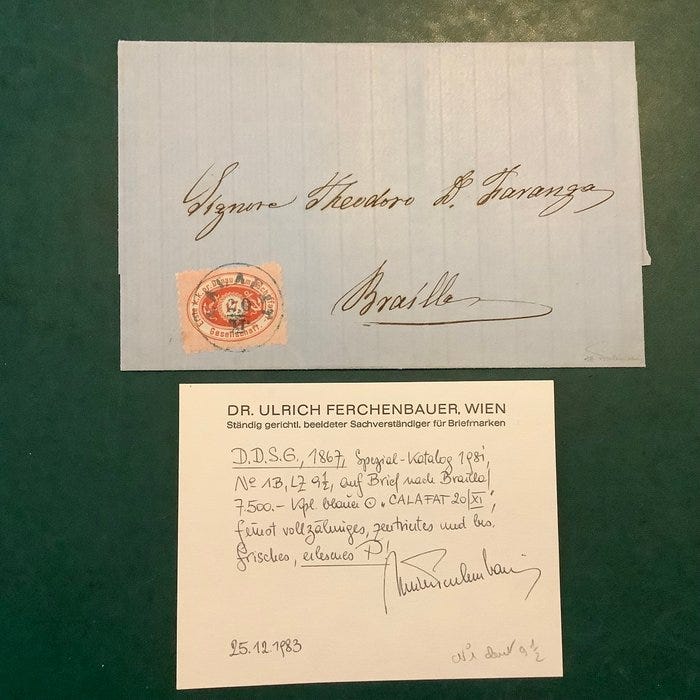 Signore Theodoro D. Faranga
Erste k.k. pr. Donau Dampfschiffahrt
CALAFAT
20
XI
Gesellschaft.
Brailla
DR. ULRICH FERCHENBAUER, WIEN
Ständig gerichtl. beeideter Sachverständiger für Briefmarken
D.D.S.G., 1867, Spezial-Katalog 1981,
No 1B, LZ 9½, auf Brief nach Braila/
7.500.- Kpl. blauer ⊙ "CALAFAT 20/XI",
feinst vollzähniges, zentriertes und bes.
frisches, erlesenes P!
25.12.1983
No 1 dent 9 ½